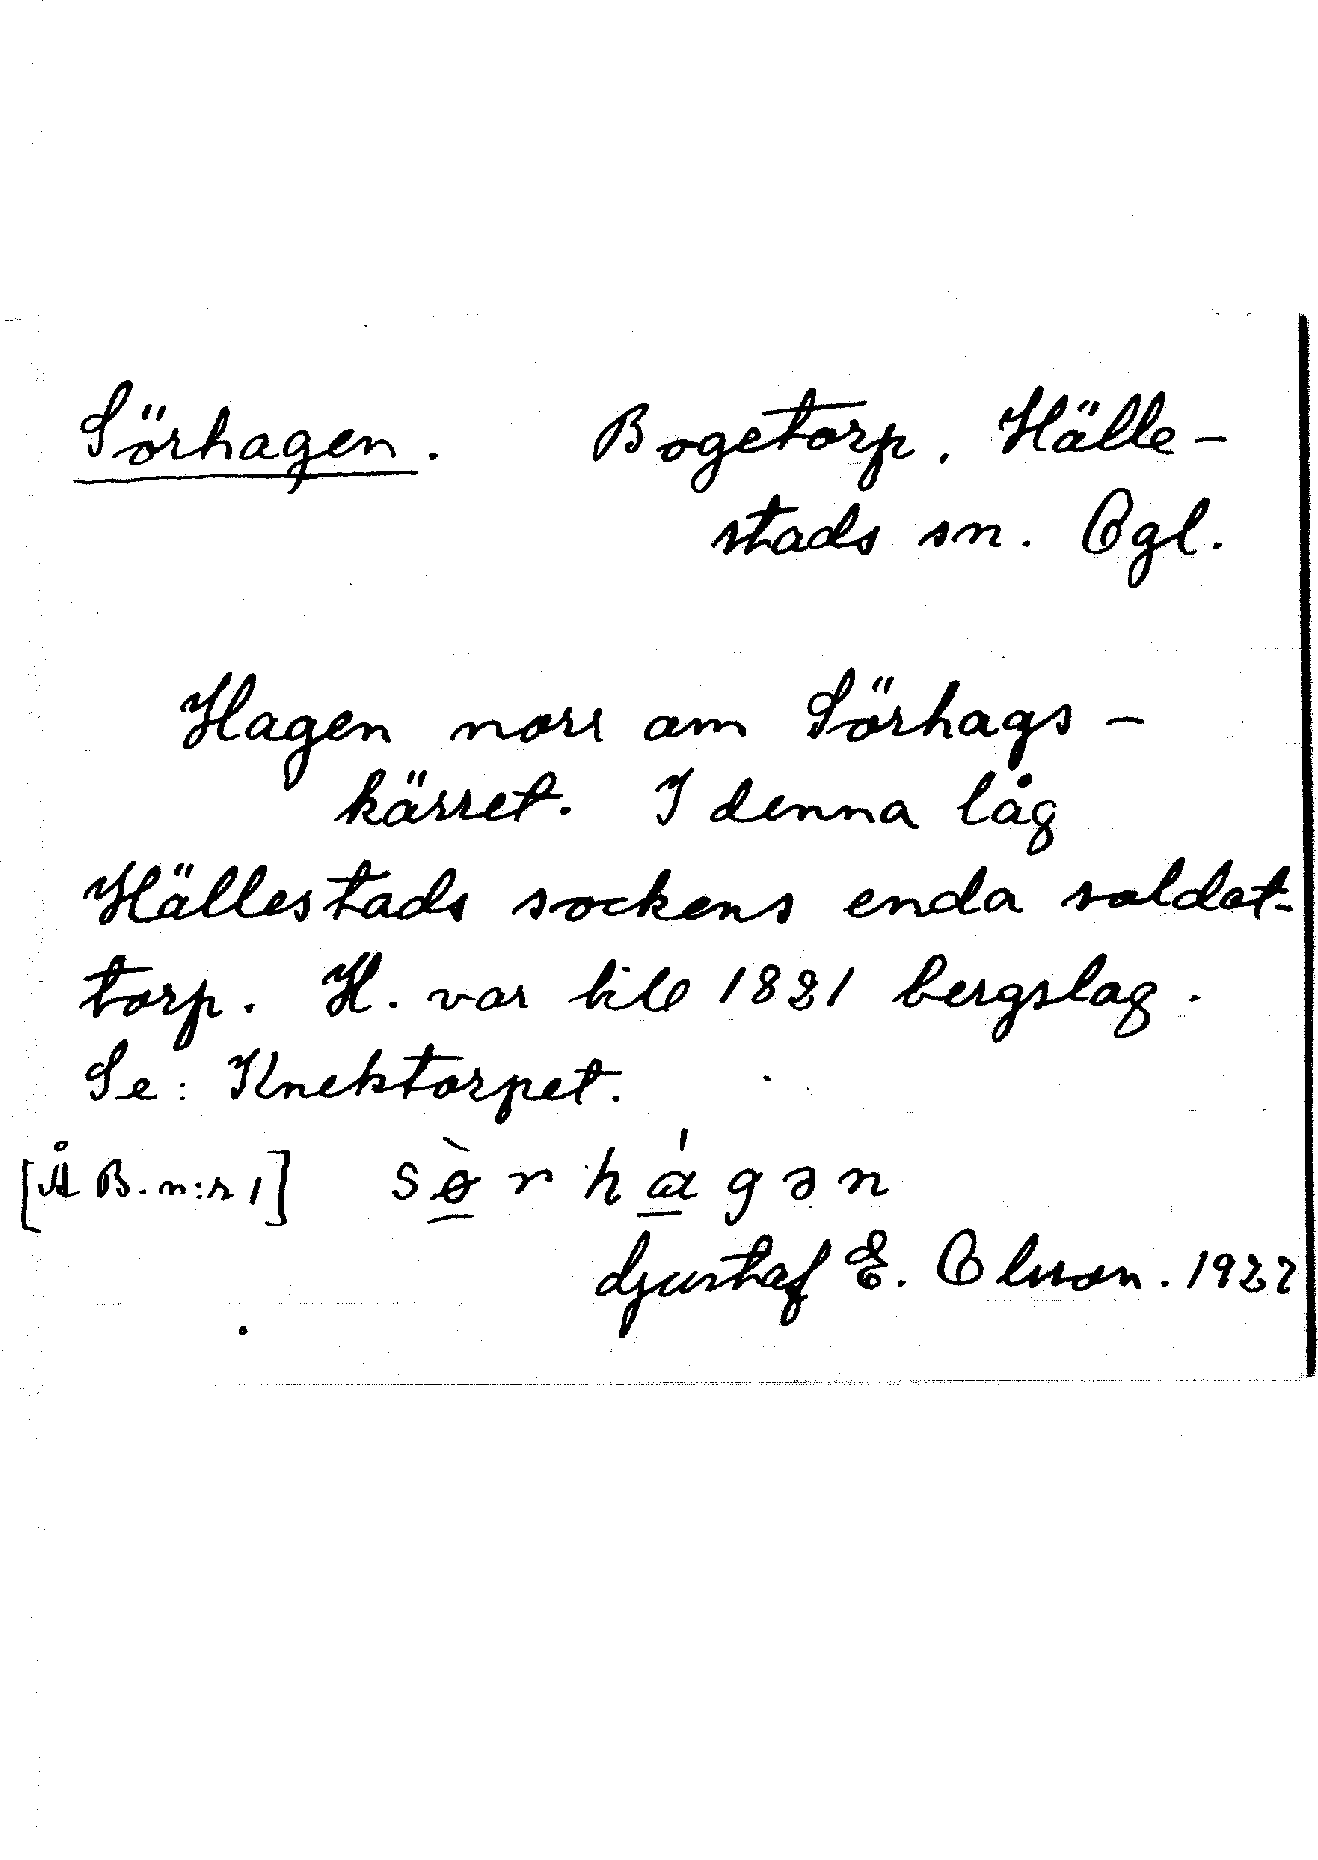 Sörhagen. Bogetorp. Hälle-
stads sn. Ögl.
Hagen norr om Sörhags-
kärret. I denna låg
Hällestads sockens enda soldat-
torp. H. var till 1821 bergslag.
Se: Knektorpet.
[Å B. n:r 1] sø̀rhágən
Gustaf E. Olsson. 1927